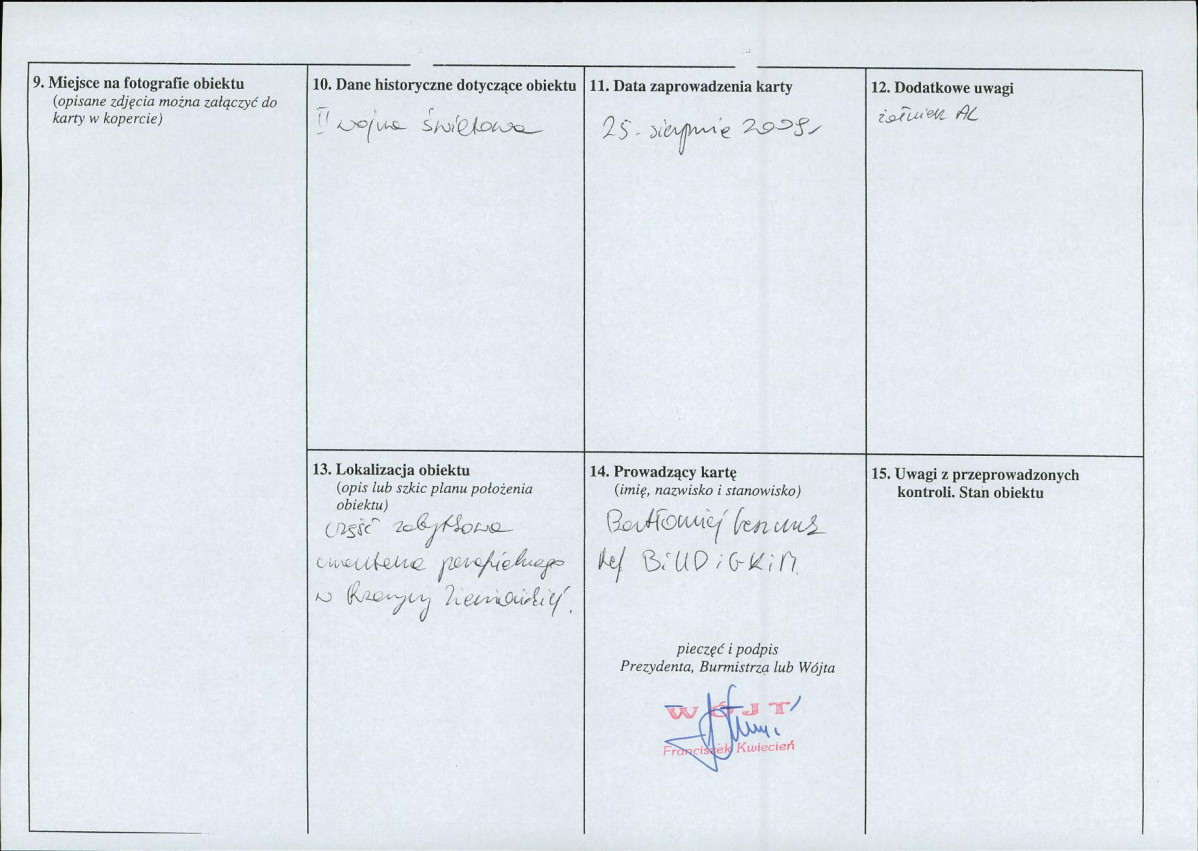 9. Miejsce na fotografie obiektu
(opisane zdjęcia można załączyć do
karty w kopercie)
10. Dane historyczne dotyczące obiektu
II wojna światowa
11. Data zaprowadzenia karty
25 - sierpnia 2009r
12. Dodatkowe uwagi
żołnierz AL
13. Lokalizacja obiektu
(opis lub szkic planu położenia
obiektu)
część zabytkowa
cmentarza parafialnego
w Rzeczycy Ziemiańskiej.
14. Prowadzący kartę
(imię, nazwisko i stanowisko)
Bartłomiej
ref
pieczęć i podpis
Prezydenta, Burmistrza lub Wójta
WÓJT
Franciszek Kwiecień
15. Uwagi z przeprowadzonych
kontroli. Stan obiektu